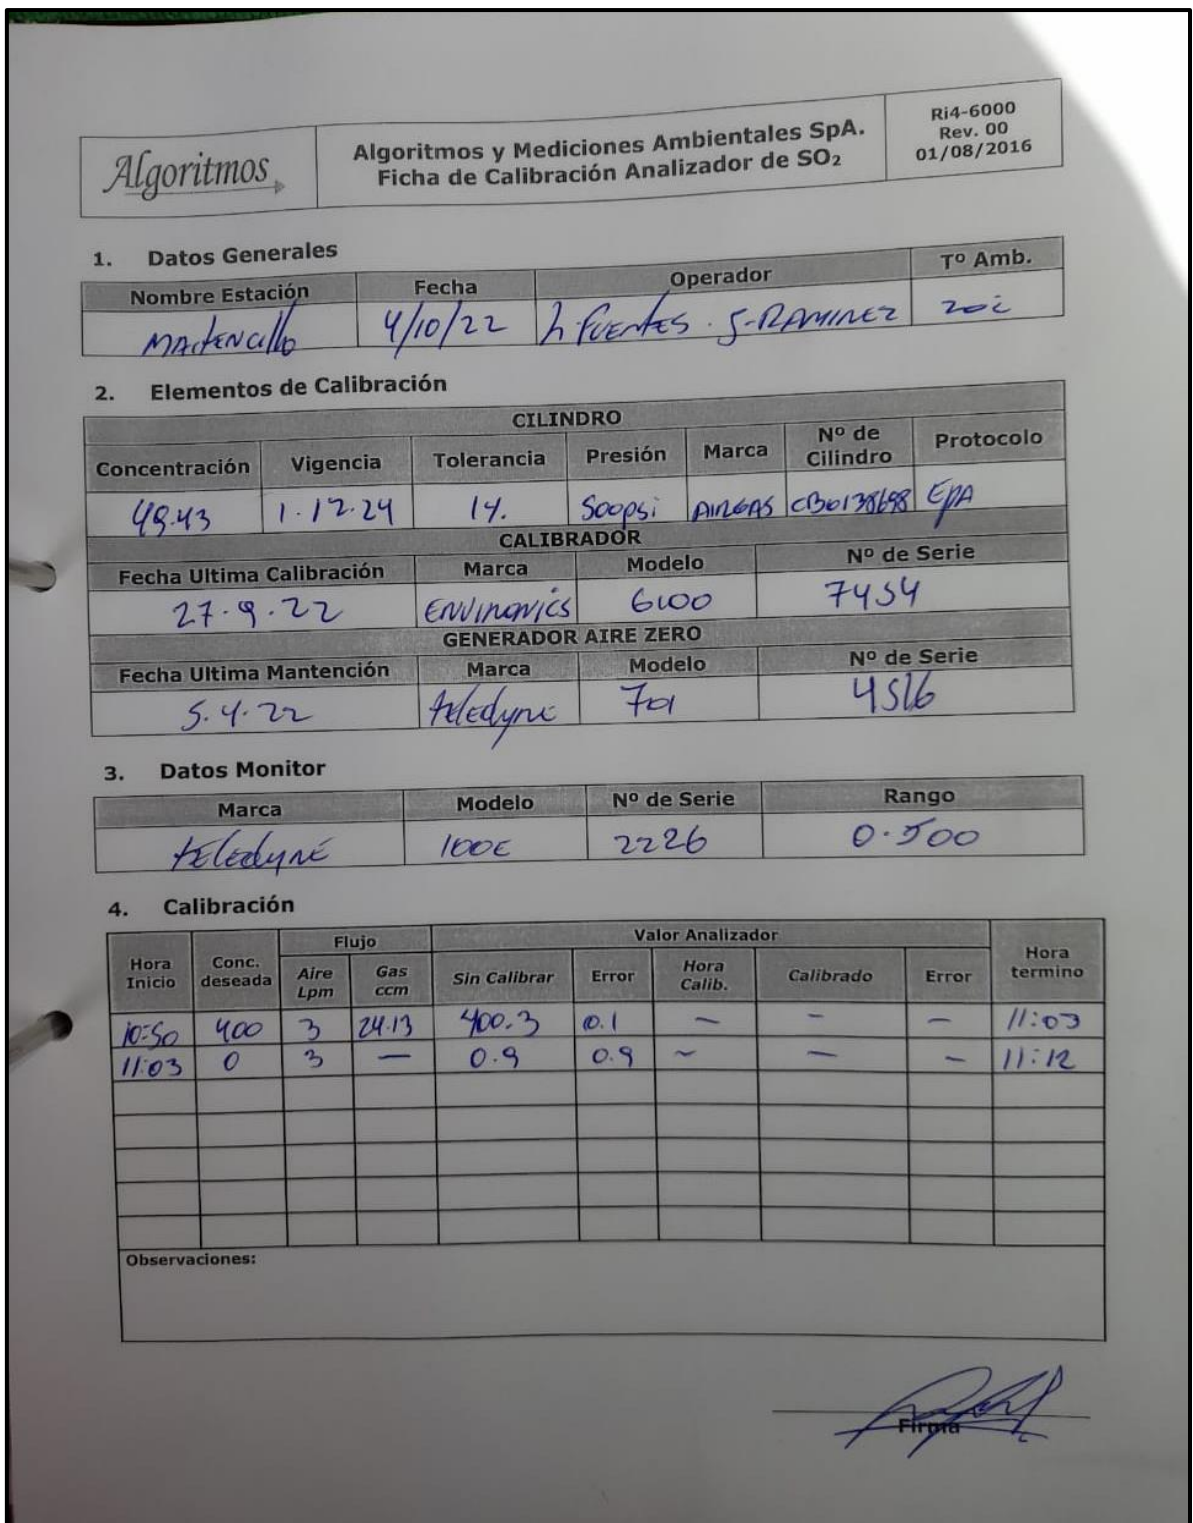 Algoritmos
Algoritmos y Mediciones Ambientales SpA.
Ficha de Calibración Analizador de SO₂
Ri4-6000
Rev. 00
01/08/2016
1. Datos Generales
Nombre Estación Fecha Operador Tº Amb.
4/10/22 FUENTES . J-RAMIREZ
2. Elementos de Calibración
CILINDRO
Concentración Vigencia Tolerancia Presión Marca Nº de Cilindro Protocolo
49.43 1.12.24 500psi AIRGAS CB0138698 EPA
CALIBRADOR
Fecha Ultima Calibración Marca Modelo Nº de Serie
27.9.22 ENVIRONICS 6100 7454
GENERADOR AIRE ZERO
Fecha Ultima Mantención Marca Modelo Nº de Serie
5.4.22 teledyne 701 4516
3. Datos Monitor
Marca Modelo Nº de Serie Rango
teledyne 100E 2226 0-500
4. Calibración
Flujo Valor Analizador
Hora Inicio Conc. deseada Aire Lpm Gas ccm Sin Calibrar Error Hora Calib. Calibrado Error Hora termino
10:50 400 3 24.13 400.3 0.1 - - - 11:03
11:03 0 3 - 0.9 0.9 - - - 11:12
Observaciones:
Firma